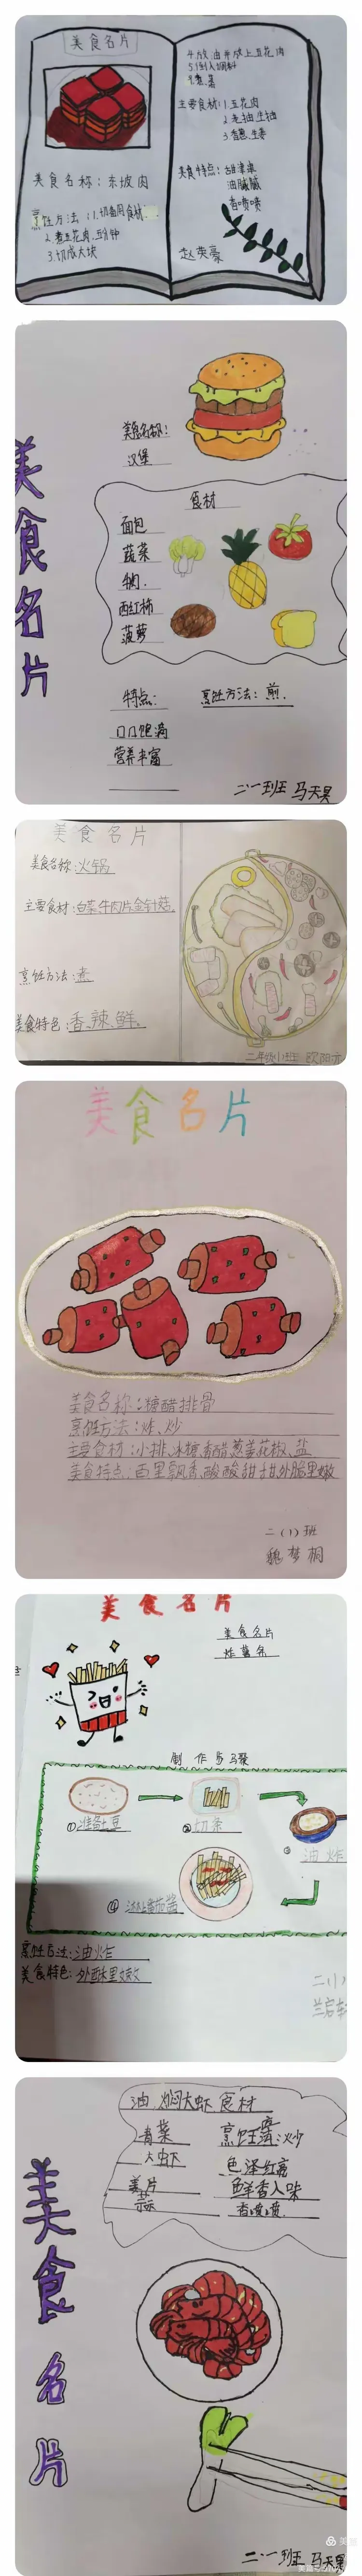 美食名片
美食名称：东坡肉
烹饪方法：1.切备用食材
2.煮五花肉，五分钟
3.切成大块
4.放油 并放上五花肉
5.倒入调料
主要食材：1.豆花肉
2.老油 生抽
3.香葱 生姜
美食特点：甜津津
油腻腻
香喷喷
赵英豪
美食名片
美食名称：
汉堡
食材
面包
蔬菜
牛肉.
西红柿
菠萝
特点：
口口饱满
营养丰富
烹饪方法：煎.
二.一班王 马天昊
美食名片
美食名称：火锅
主要食材：白菜.牛肉片.金针菇.
烹饪方法：煮
美食特色：香.辣.鲜.
二年级(1)班 欧阳
美食名片
美食名称：糖醋排骨
烹饪方法：炸、炒
主要食材：小排、冰糖、香醋、葱、姜、花椒、盐
美食特点：百里飘香、酸酸甜甜、外脆里嫩
二(1)班
魏梦桐
美食名片
美食名片
炸薯条
制作步骤
①准备土豆
②切条
③油炸
④浇上番茄酱
烹饪方法：油炸
美食特色：外酥里嫩
二(1)
兰启轩
美食名片
油.焖大虾 食材
青菜
大虾
姜片
蒜
烹饪方法：火炒
色泽红亮
鲜香入味
香喷喷.
二.一班王 马天昊
美篇